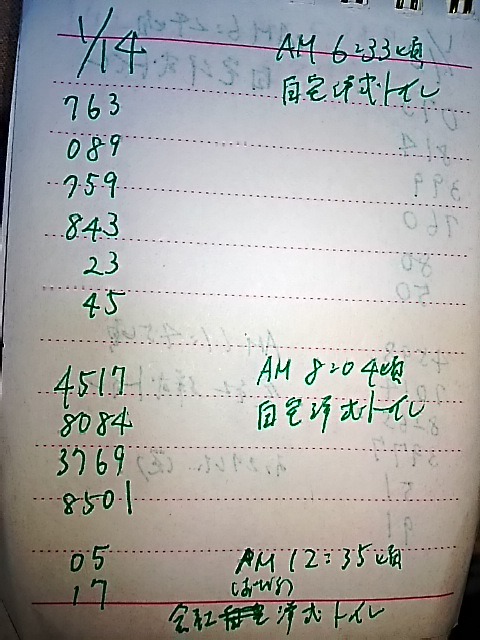 1/14 AM 6:33頃
自宅洋式トイレ
763
089
759
843
23
45
4517 AM 8:04頃
8084 自宅洋式トイレ
3769
8501
05 AM 12:35頃
17
会社 洋式トイレ